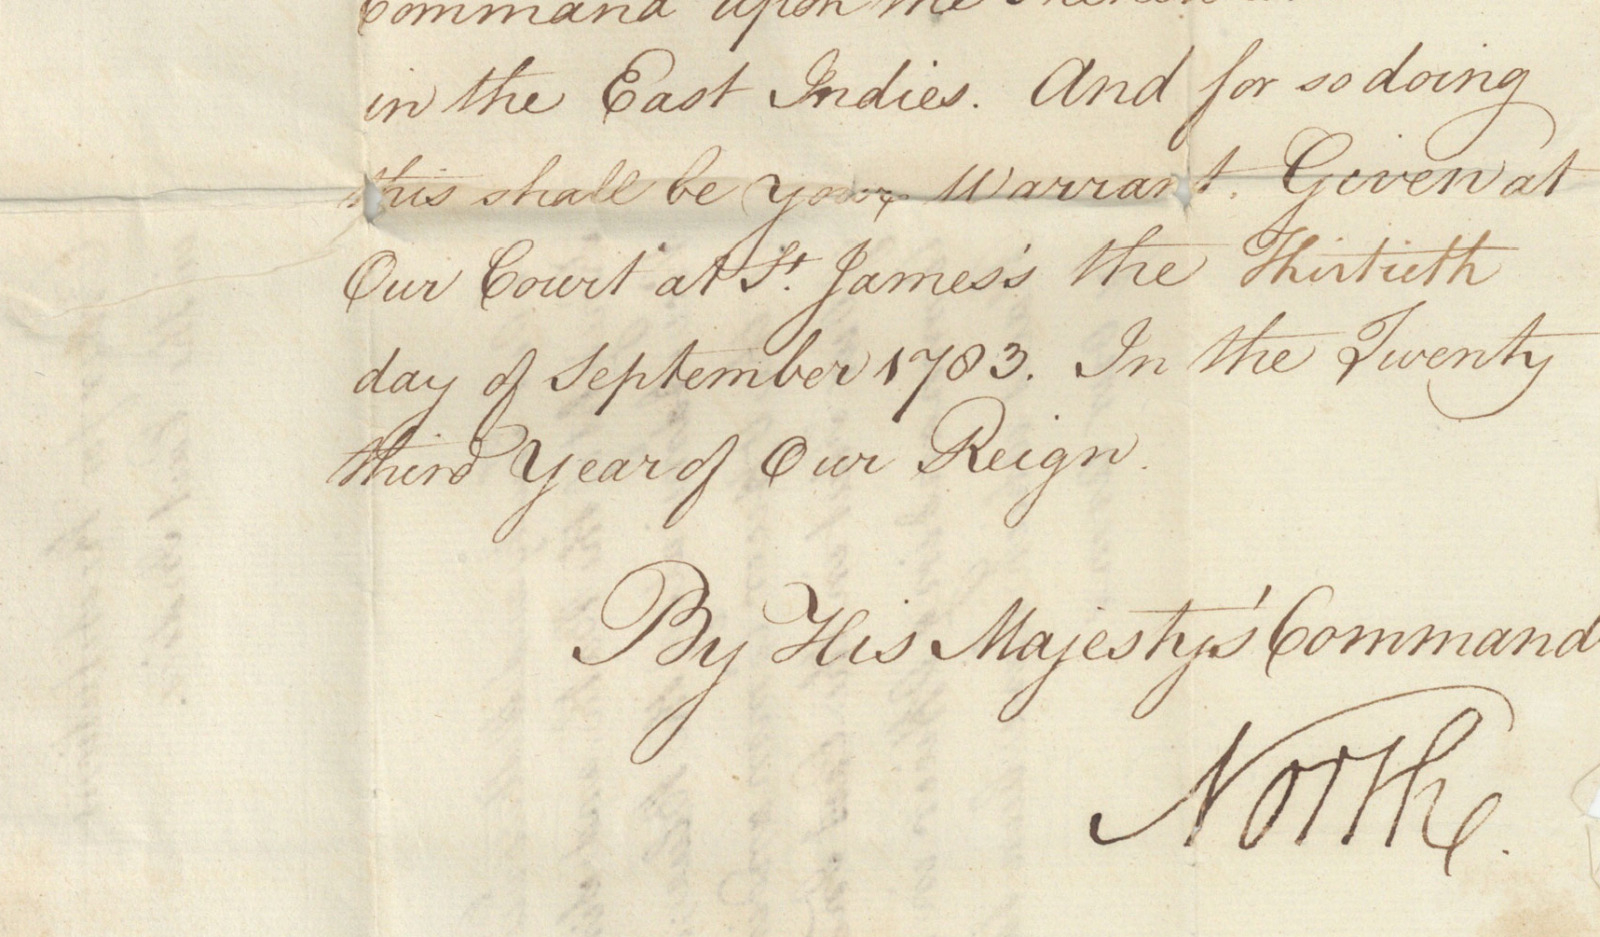 Command upon the
in the East Indies. And for so doing
this shall be your Warrant. Given at
Our Court at St. James's the Thirtieth
day of September 1783. In the Twenty
third Year of Our Reign.
By His Majesty's Command
North.